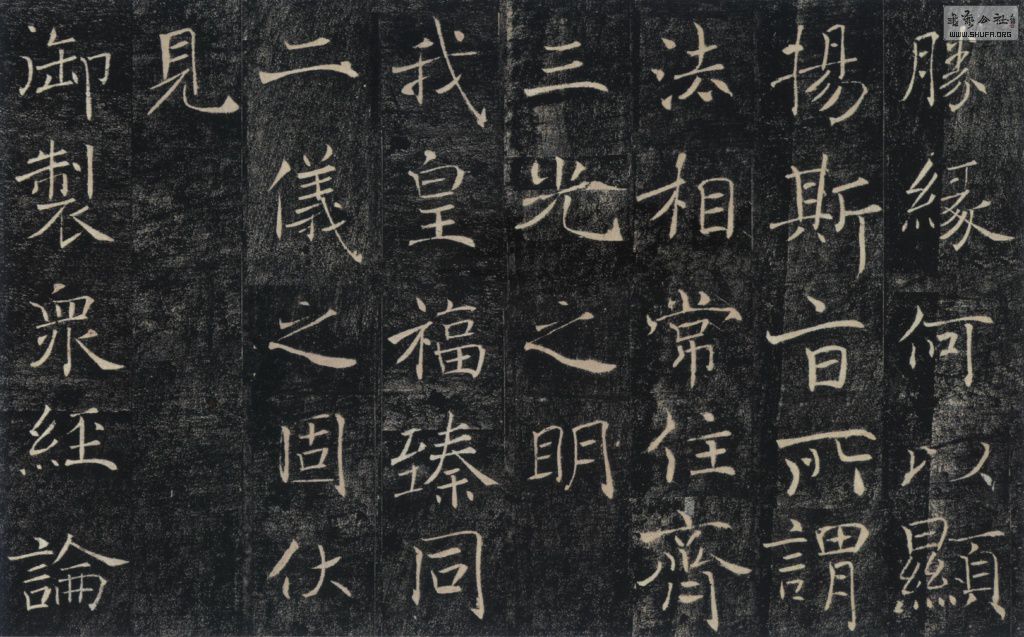 勝緣何以顯
揚斯旨所謂
法相常住齊
三光之明
我皇福臻同
二儀之固伏
見
御製眾經論
WWW.SHUFA.ORG